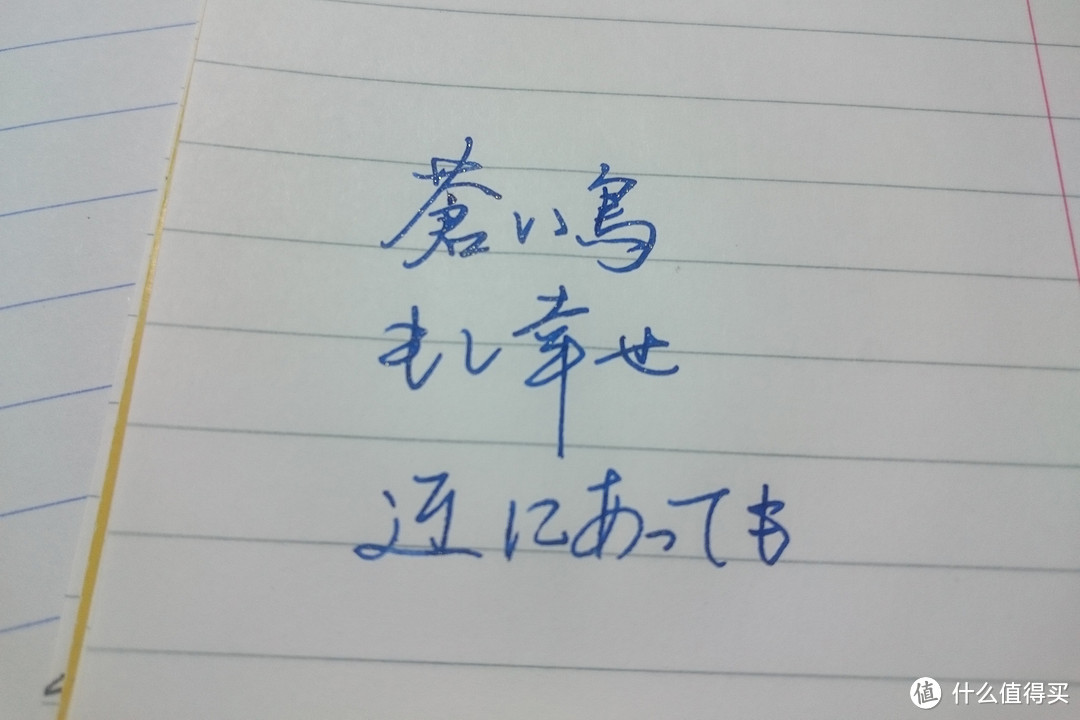 蒼い鳥
もし幸せ
近にあっても
值 什么值得买